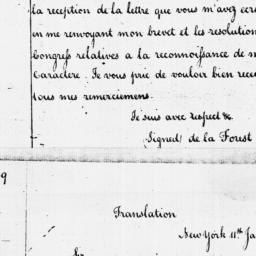 la reception de la lettre que vous m'avez ecr
en me renvoyant mon brevet et les resolution
Congress relatives a la reconnoissance de m
Caractere. Je vous prie de vouloir bien rece
tous mes remerciemens.
Je suis avec respect &c.
(Signed) de la Forest
9
Translation
New York 11th Ja
Sir